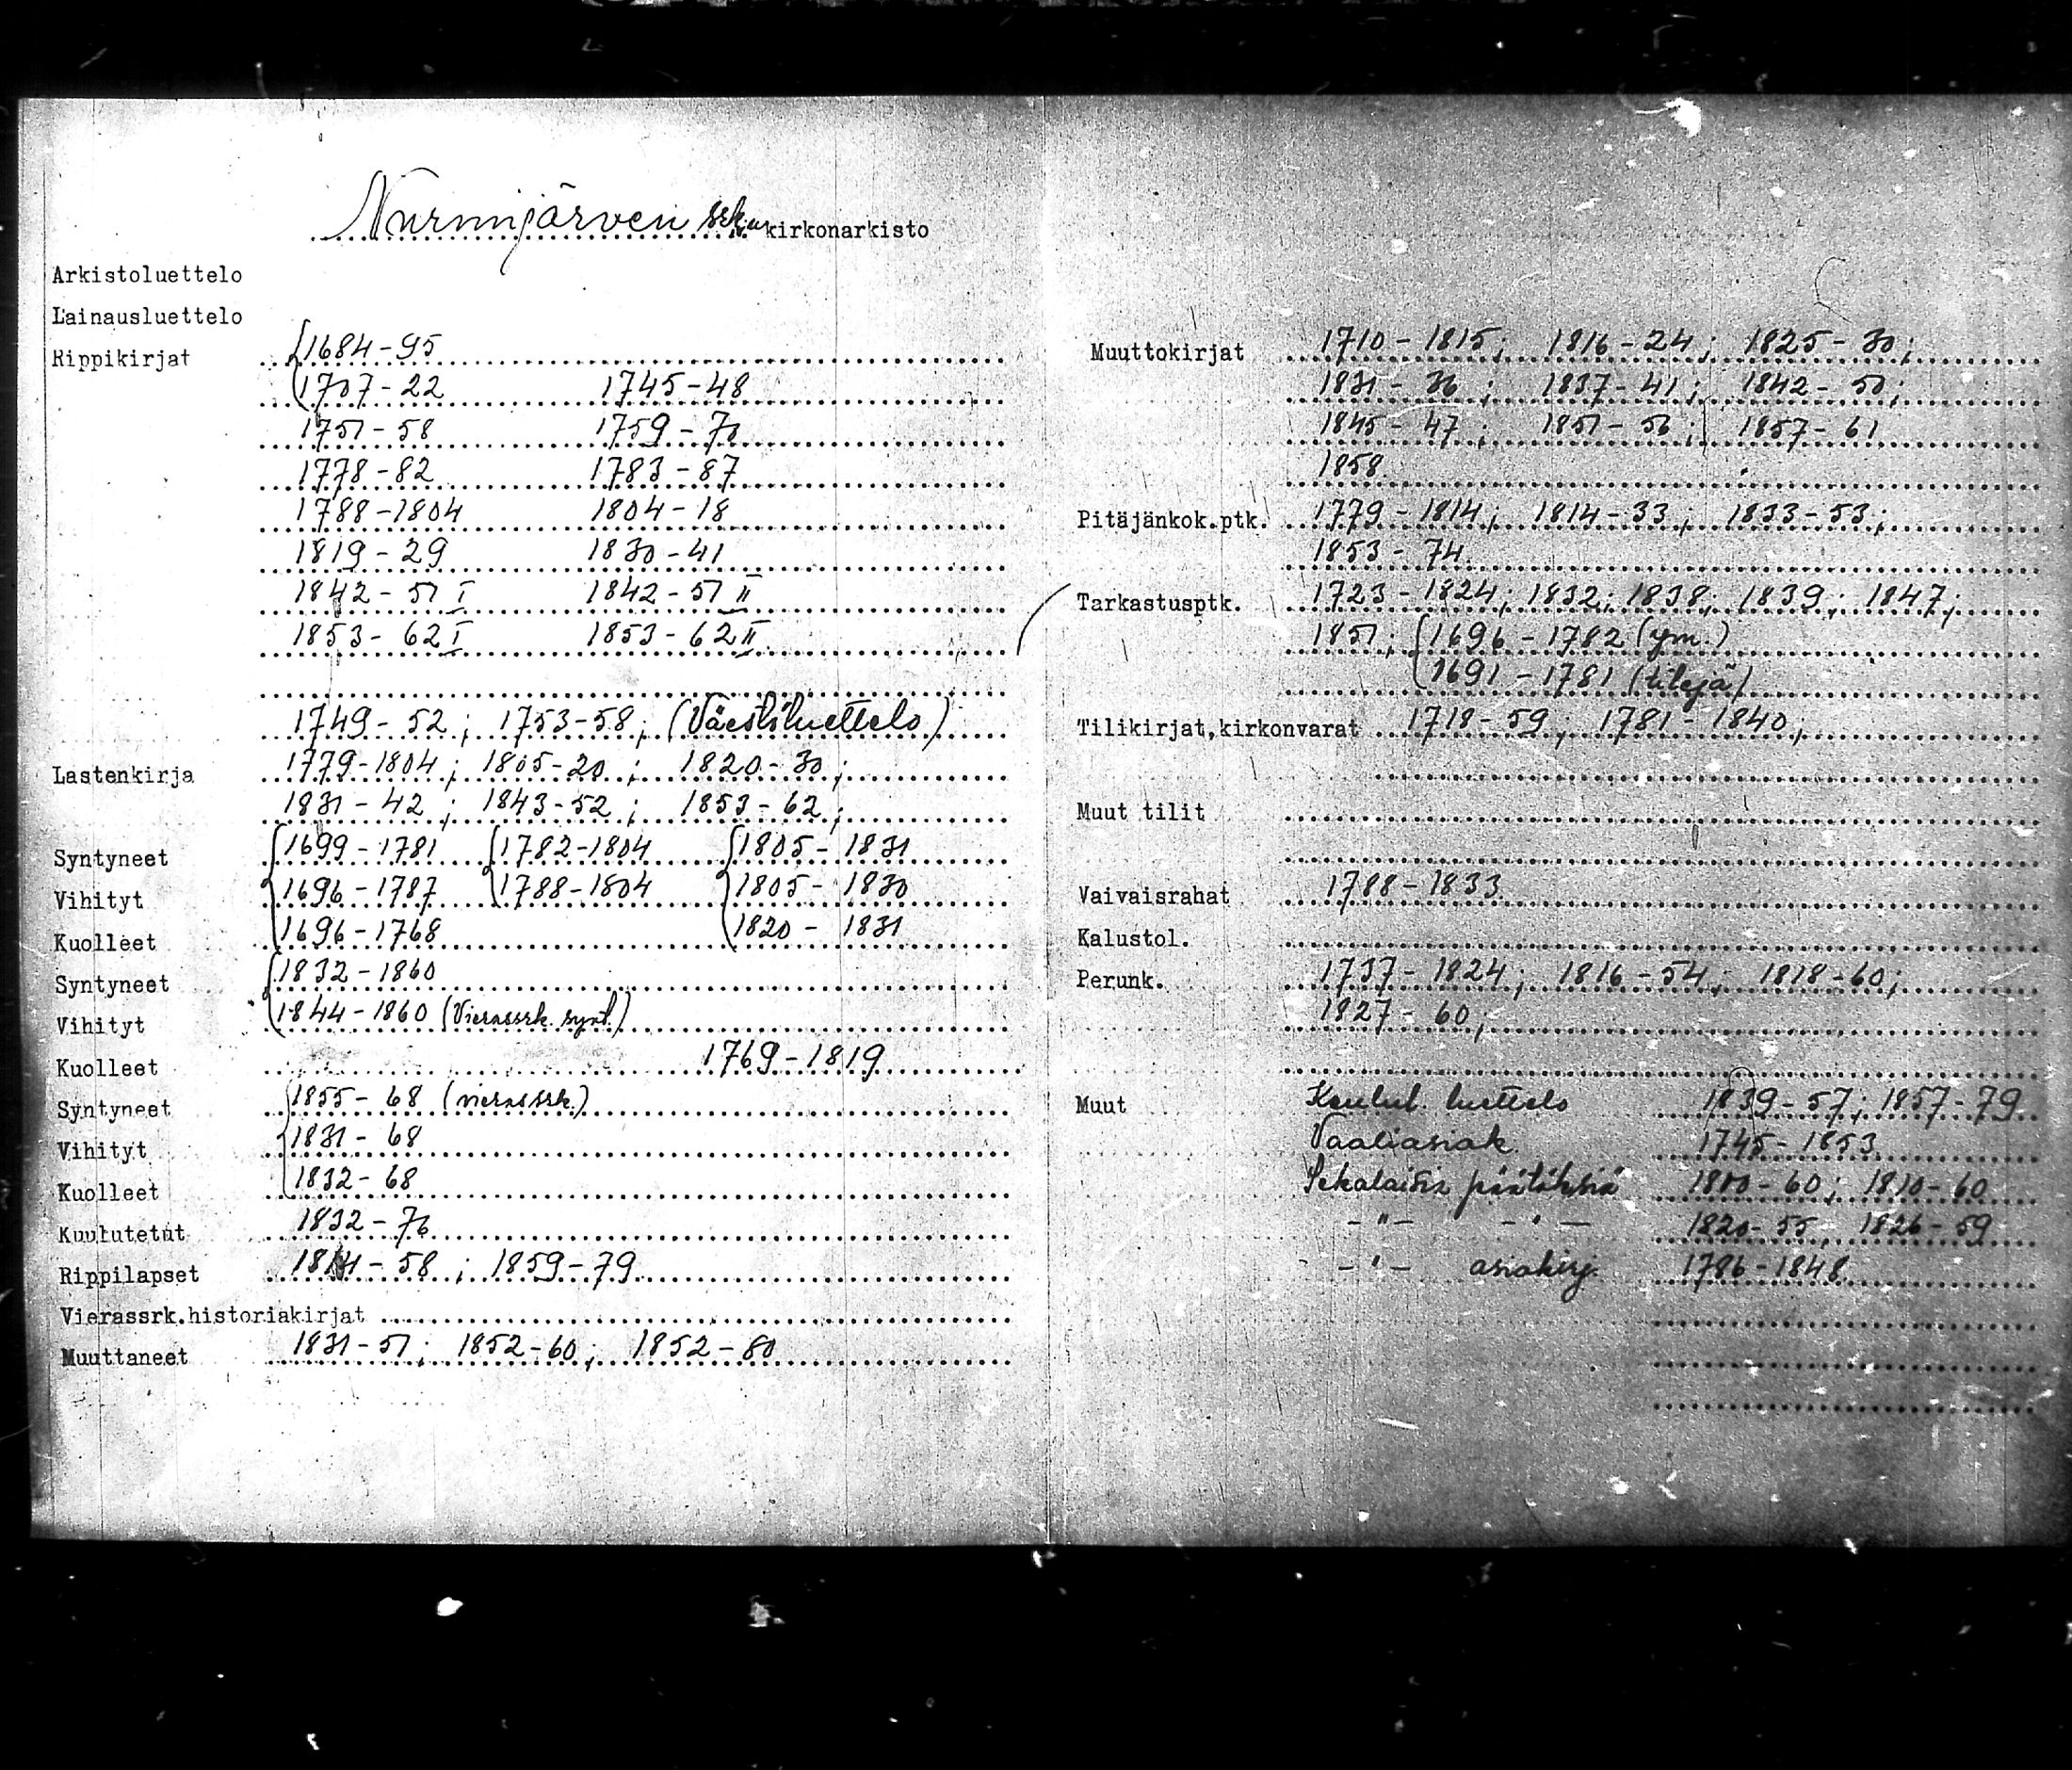 Nurmijärven srk:n kirkonarkisto
Arkistoluettelo
Lainausluettelo
Rippikirjat 1684-95
1707-22 1745-48
1751-58 1759-70
1778-82 1783-87
1788-1804 1804-18
1819-29 1830-41
1842-51 I 1842-51 II
1853-62 I 1853-62 II
1749-52; 1753-58; (Väestöluettelo)
Lastenkirja 1779-1804; 1805-20; 1820-30;
1831-42; 1843-52; 1853-62;
Syntyneet 1699-1781 1782-1804 1805-1831
Vihityt 1696-1787 1788-1804 1805-1830
Kuolleet 1696-1768 1820-1831
Syntyneet 1832-1860
Vihityt 1844-1860 (Vierassrk. synt.)
Kuolleet 1769-1819
Syntyneet 1855-68 (vierassrk.)
Vihityt 1831-68
Kuolleet 1832-68
Kuulutetut 1832-76
Rippilapset 1814-58; 1859-79
Vierassrk.historiakirjat
Muuttaneet 1831-51; 1852-60; 1852-80
Muuttokirjat 1710-1815; 1816-24; 1825-30;
1831-36; 1837-41; 1842-50;
1845-47; 1851-56; 1857-61
1858
Pitäjänkok.ptk. 1779-1814; 1814-33; 1833-53;
1853-74
Tarkastusptk. 1723-1824; 1832; 1838; 1839; 1847;
1851; 1696-1782 (ym.)
1691-1781 (tilejä)
Tilikirjat,kirkonvarat 1718-59; 1781-1840;
Muut tilit
Vaivaisrahat 1788-1833
Kalustol.
Perunk. 1737-1824; 1816-54; 1818-60;
1827-60;
Muut Kuulut. luettelo 1839-57; 1857-79
Vaaliasiak. 1745-1853
Sekalaisia päätöksiä 1800-60; 1810-60
-"- -"- 1820-55, 1826-59
-"- asiakirj. 1786-1848